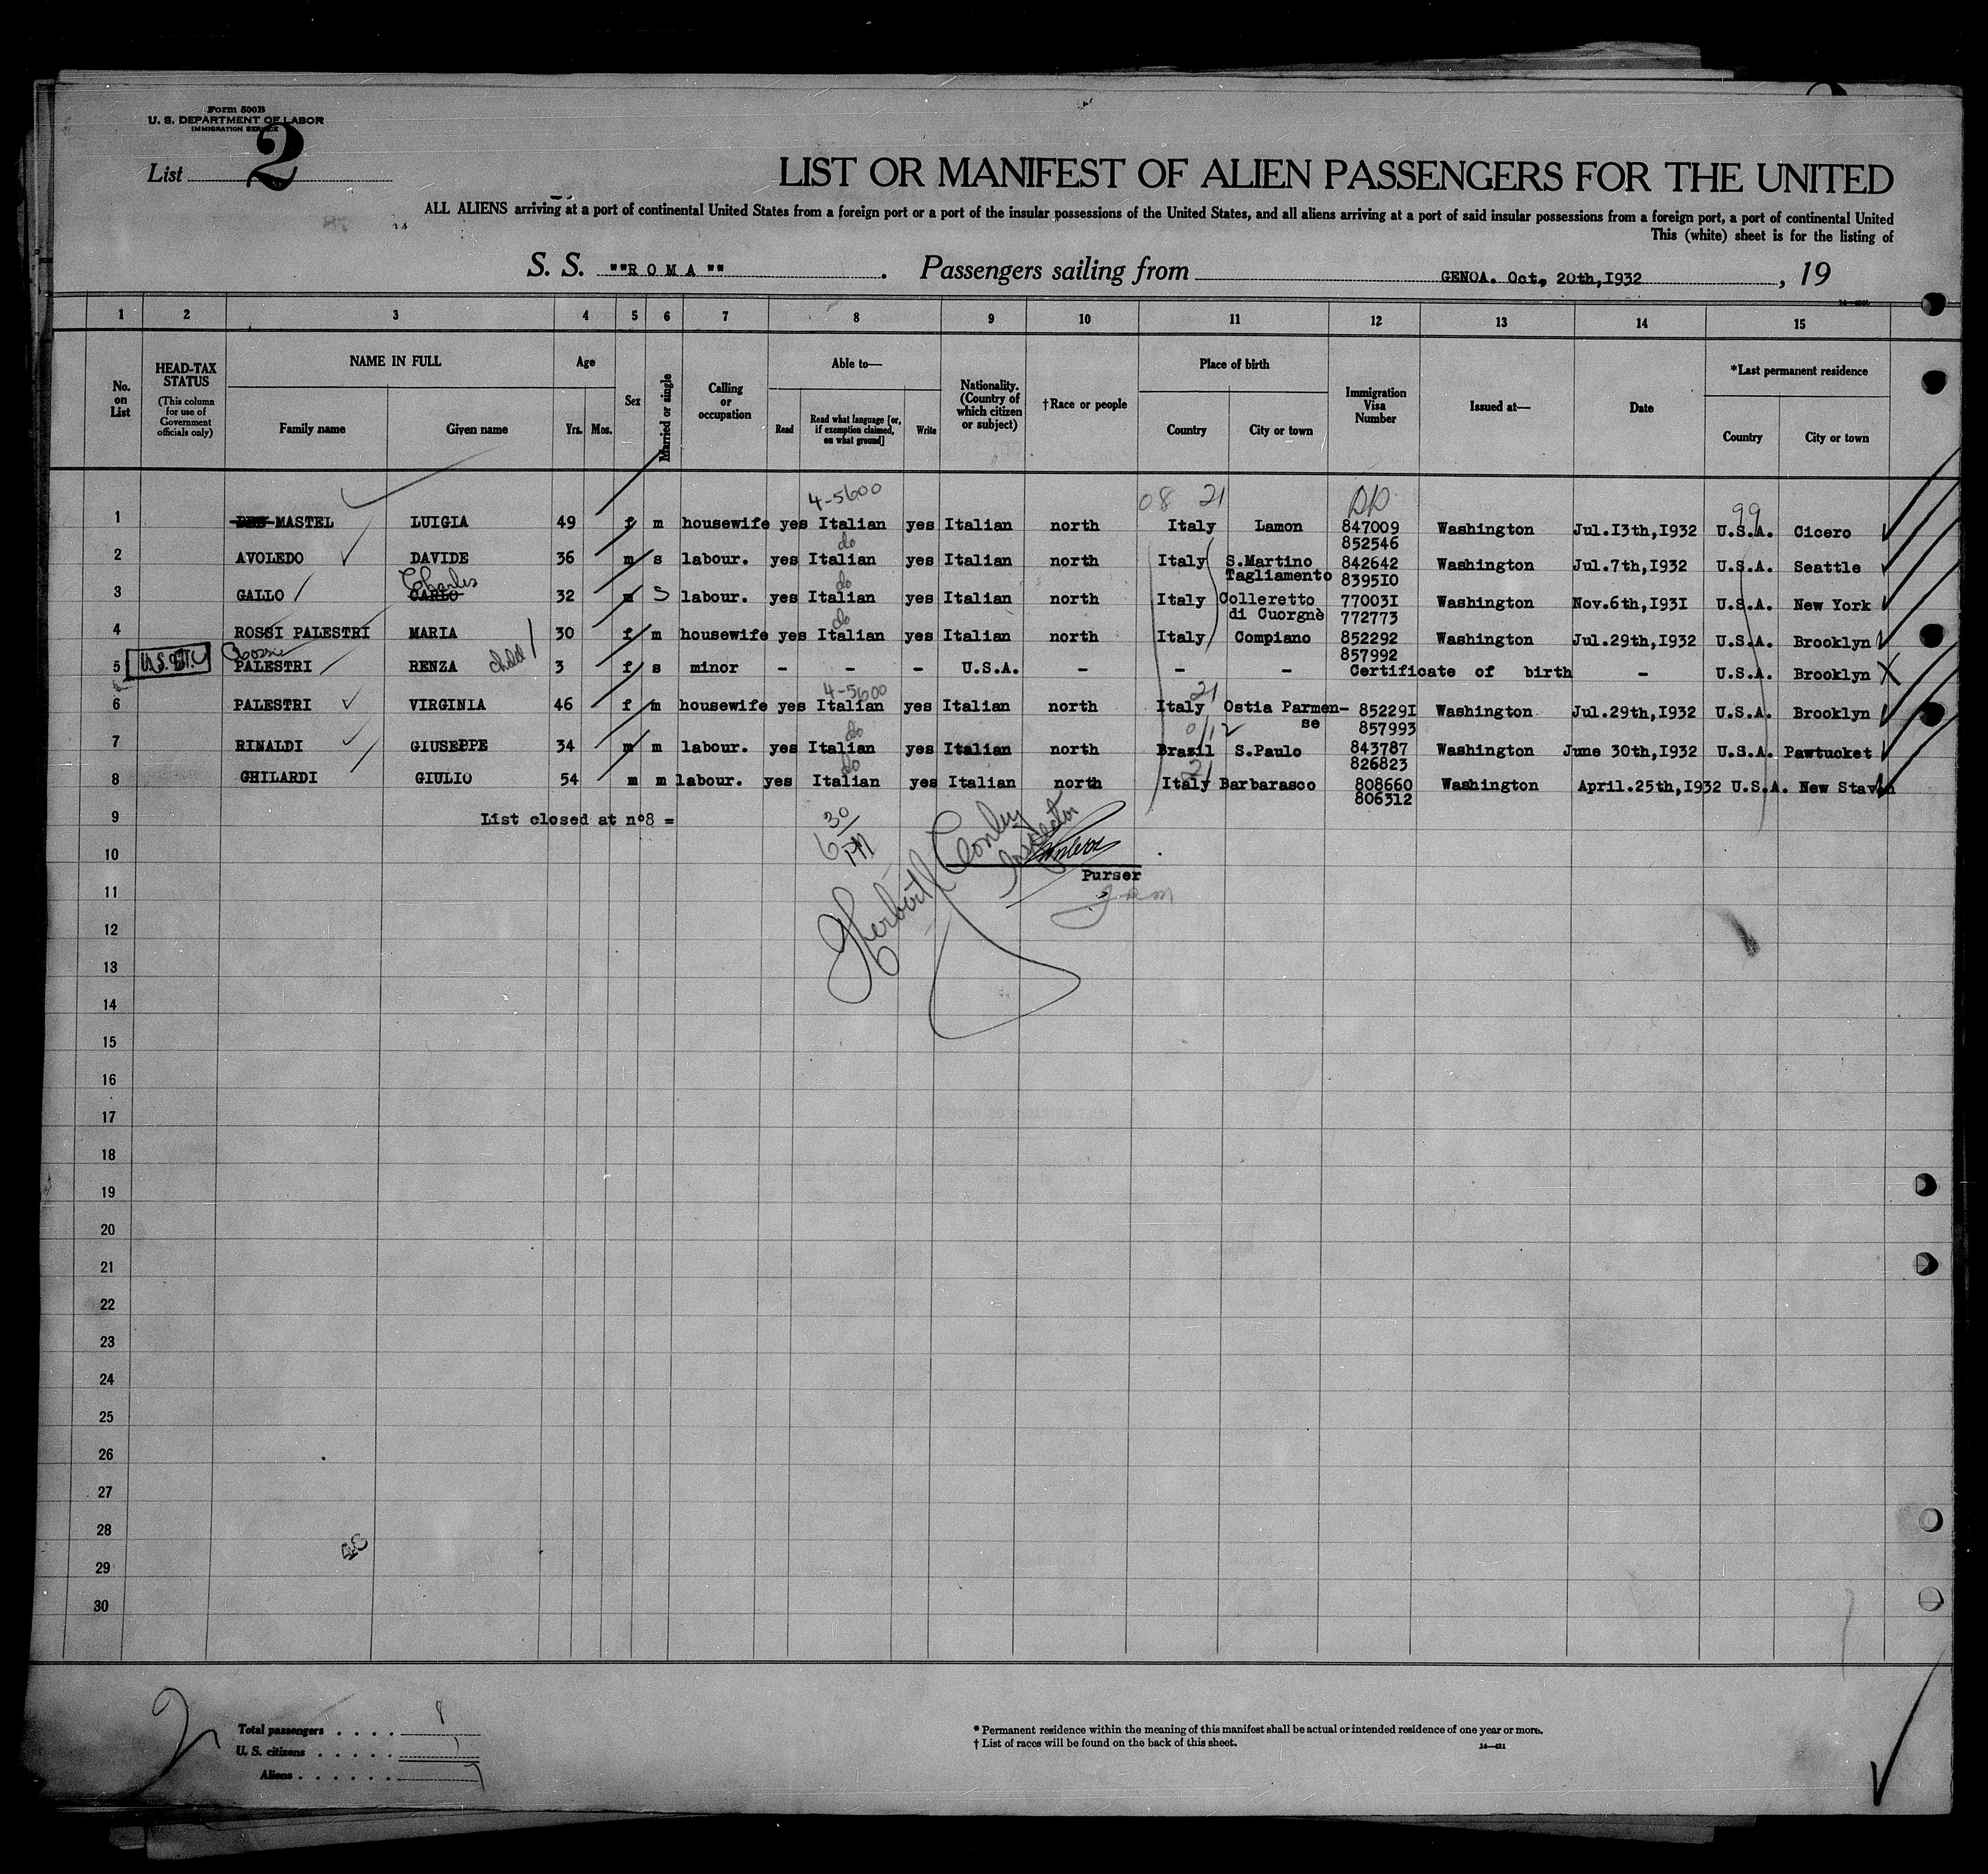 Form 500B
U. S. DEPARTMENT OF LABOR
IMMIGRATION SERVICE
List 2
LIST OR MANIFEST OF ALIEN PASSENGERS FOR THE UNITED
ALL ALIENS arriving at a port of continental United States from a foreign port or a port of the insular possessions of the United States, and all aliens arriving at a port of said insular possessions from a foreign port, a port of continental United
This (white) sheet is for the listing of
S. S. ""ROMA"". Passengers sailing from GENOA. Oct, 20th,I932, 19
1 2 3 4 5 6 7 8 9 10 11 12 13 14 15
No. on List
HEAD-TAX STATUS
(This column for use of Government officials only)
NAME IN FULL
Family name Given name
Age
Yrs. Mos.
Sex
Married or single
Calling or occupation
Able to—
Read
Read what language [or, if exemption claimed, on what ground]
Write
Nationality. (Country of which citizen or subject)
†Race or people
Place of birth
Country City or town
Immigration Visa Number
Issued at—
Date
*Last permanent residence
Country City or town
4-5600 08 21 DD 99
1 DES MASTEL LUIGIA 49 f m housewife yes Italian yes Italian north Italy Lamon 847009 Washington Jul.I3th,I932 U.S.A. Cicero
852546
do
2 AVOLEDO DAVIDE 36 m s labour. yes Italian yes Italian north Italy S.Martino 842642 Washington Jul.7th,I932 U.S.A. Seattle
Tagliamento 8395I0
Charles do
3 GALLO CARLO 32 m S labour. yes Italian yes Italian north Italy Colleretto 77003I Washington Nov.6th,I93I U.S.A. New York
di Cuorgnè 772773
do
4 ROSSI PALESTRI MARIA 30 f m housewife yes Italian yes Italian north Italy Compiano 852292 Washington Jul.29th,I932 U.S.A. Brooklyn
857992
Rossi
5 PALESTRI RENZA child 3 f s minor - - - U.S.A. - - - Certificate of birth - U.S.A. Brooklyn X
4-5600 21
6 PALESTRI VIRGINIA 46 f m housewife yes Italian yes Italian north Italy Ostia Parmen- 85229I Washington Jul.29th,I932 U.S.A. Brooklyn
se 857993
do 0/12
7 RINALDI GIUSEPPE 34 m m labour. yes Italian yes Italian north Brasil S.Paulo 843787 Washington June 30th,I932 U.S.A. Pawtucket
826823
do 21
8 GHILARDI GIULIO 54 m m labour. yes Italian yes Italian north Italy Barbarasco 808660 Washington April.25th,I932 U.S.A. New Staven
806312
9 List closed at n°8 =
6 30/PM
Herbert Conley
Inspector
10
Purser
11
12
13
14
15
16
17
18
19
20
21
22
23
24
25
26
27
28
29
30
2
Total passengers . . . . 8
U. S. citizens . . . . . 1
Aliens . . . . . . 7
* Permanent residence within the meaning of this manifest shall be actual or intended residence of one year or more.
† List of races will be found on the back of this sheet.